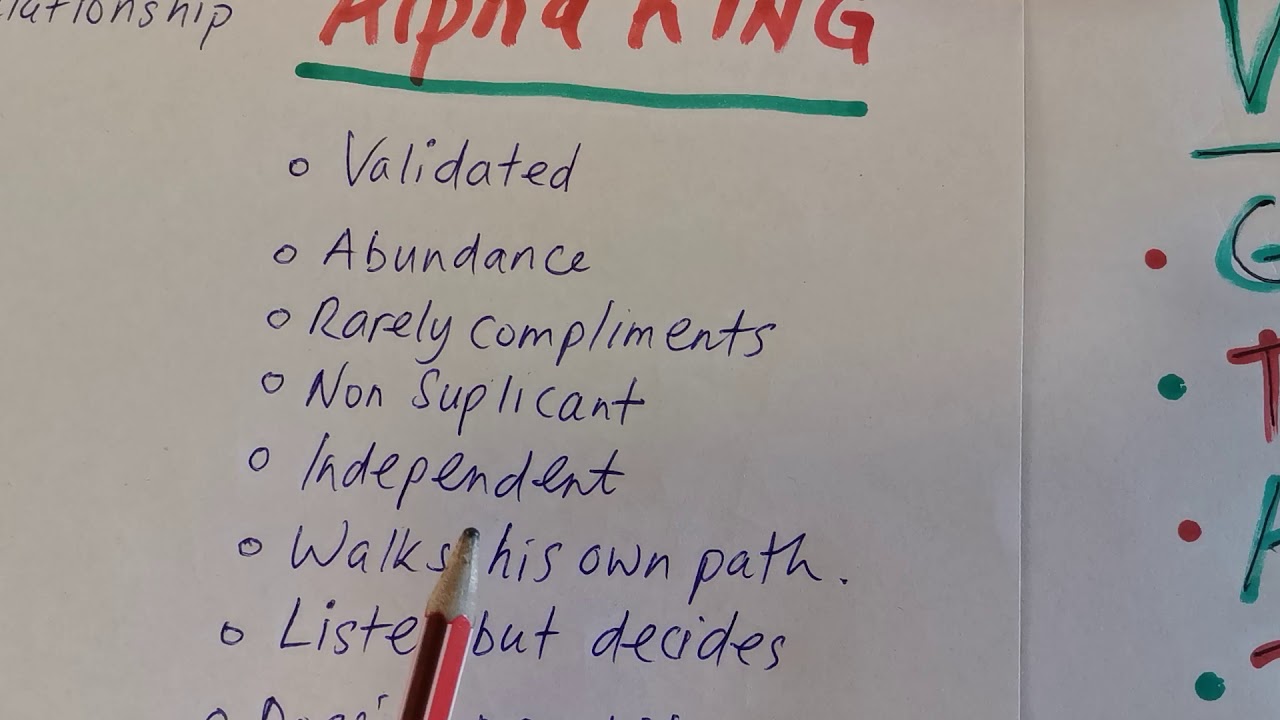 Alpha KING
o Validated
o Abundance
o Rarely compliments
o Non Suplicant
o Independent
o Walks his own path.
o Liste but decides